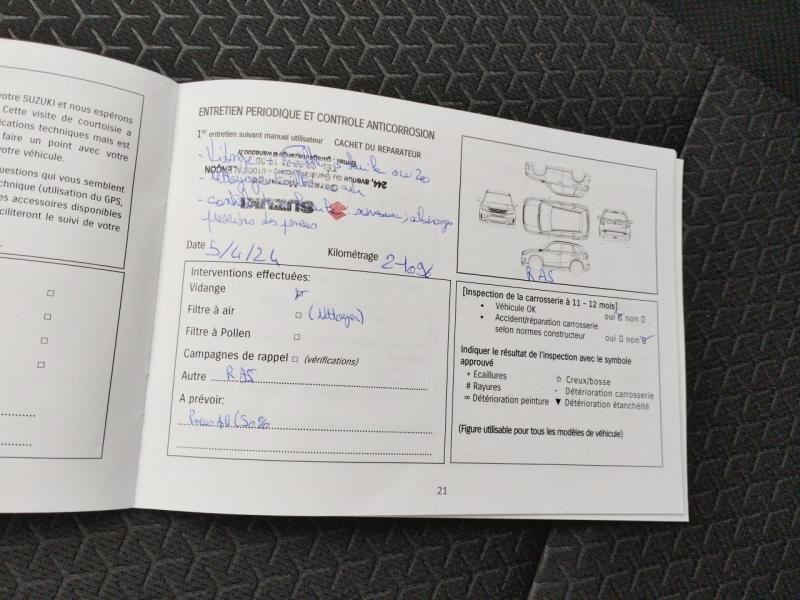 votre SUZUKI et nous espérons
Cette visite de courtoisie a
ications techniques mais est
faire un point avec votre
votre véhicule.
uestions qui vous semblent
chnique (utilisation du GPS,
es accessoires disponibles
ciliteront le suivi de votre
ENTRETIEN PERIODIQUE ET CONTROLE ANTICORROSION
1er entretien suivant manuel utilisateur CACHET DU REPARATEUR
- Vidange huile 0W20
- nettoyage air
244, avenue du Général
SUZUKI
- niveaux, éclairage
pressions des pneus
Date 5/4/24 Kilométrage
RAS
Interventions effectuées:
Vidange
Filtre à air □ (Nettoyer)
Filtre à Pollen □
Campagnes de rappel □ (vérifications)
Autre RAS
A prévoir:
Pneus AV (50%
[Inspection de la carrosserie à 11 - 12 mois]
• Véhicule OK oui non
• Accident/réparation carrosserie
selon normes constructeur oui non
Indiquer le résultat de l'inspection avec le symbole
approuvé
+ Ecaillures ☆ Creux/bosse
# Rayures - Détérioration carrosserie
∞ Détérioration peinture ▼ Détérioration étanchéité
(Figure utilisable pour tous les modèles de véhicule)
21